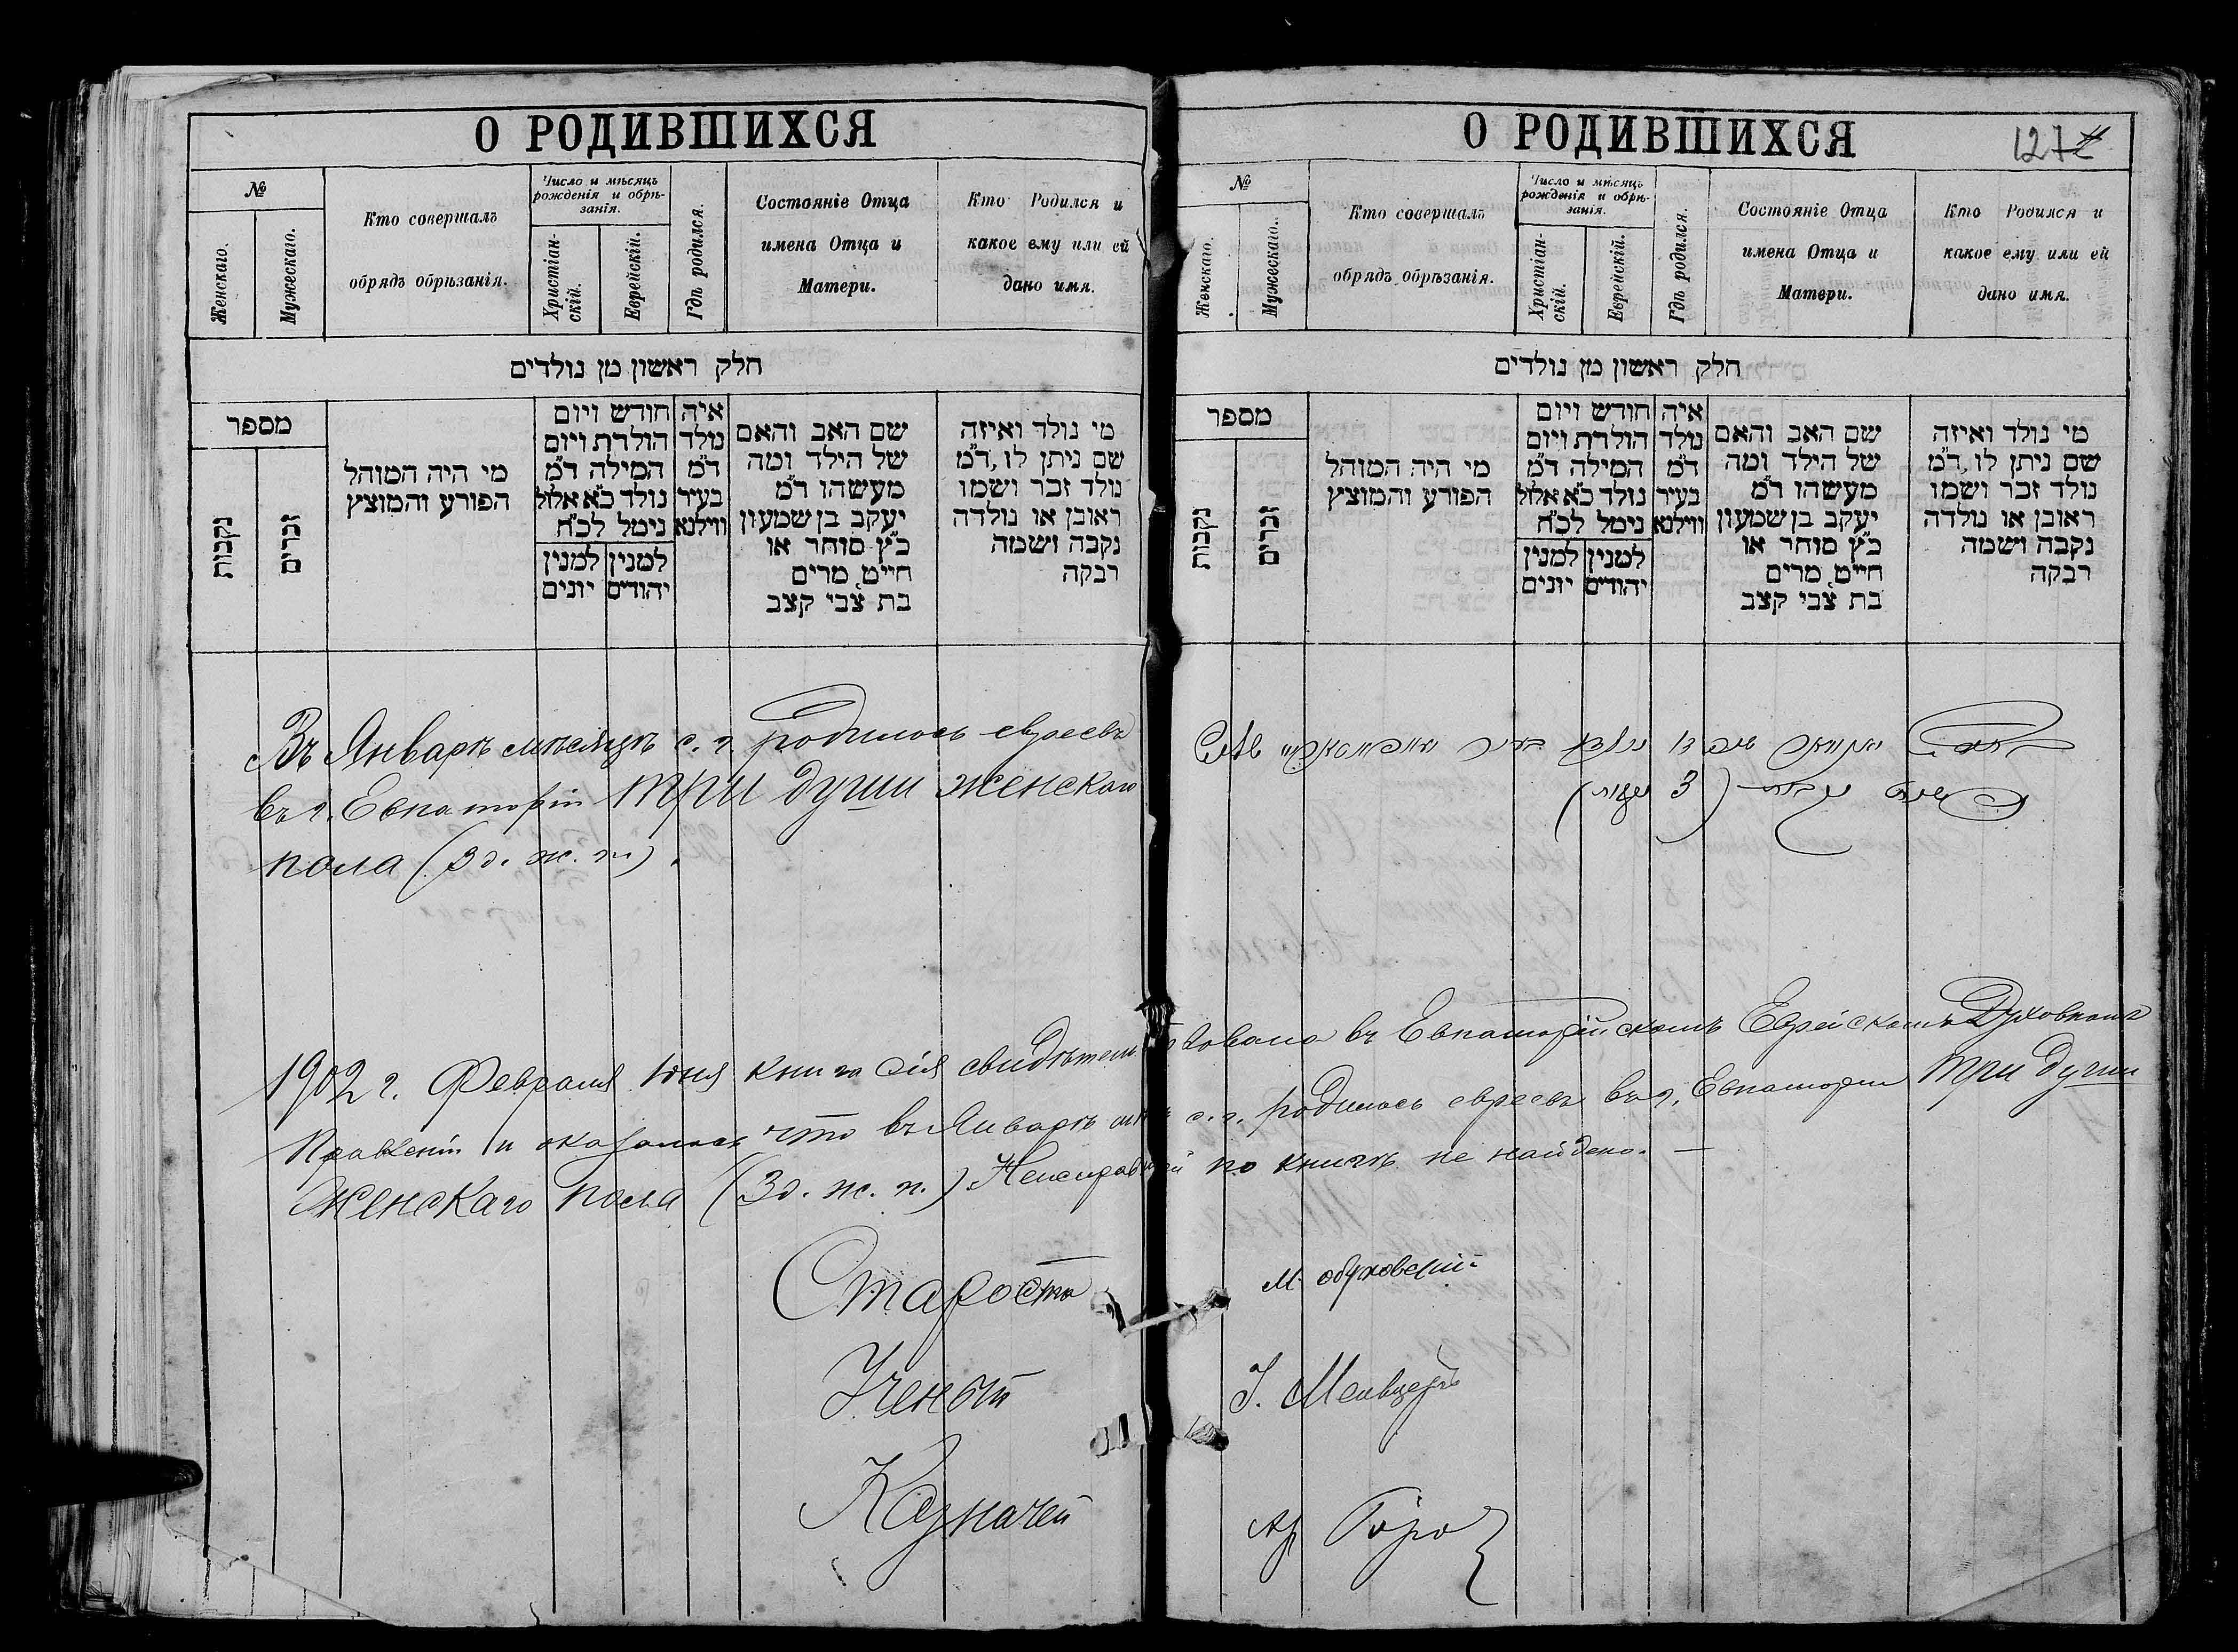 О РОДИВШИХСЯ
№
Женскаго.
Мужескаго.
Кто совершалъ
обрядъ обрѣзанія.
Число и мѣсяцъ
рожденія и обрѣ-
занія.
Христіан-
скій.
Еврейскій.
Гдѣ родился.
Состояніе Отца
имена Отца и
Матери.
Кто Родился и
какое ему или ей
дано имя.
חלק ראשון מן נולדים
מספר
נקבות
זכרים
מי היה המוהל
הפורע והמוצץ
חודש ויום
הולדת ויום
המילה ד"מ
נולד כ"א אלול
נימל לכ"ח
למנין יהודים
למנין יונים
איה
נולד
ד"מ
בעיר
ווילנא
שם האב והאם
של הילד ומה
מעשהו ד"מ
יעקב בן שמעון
כ"ץ סוחר או
חייט, מרים
בת צבי קצב
מי נולד ואיזה
שם ניתן לו, ד"מ
נולד זכר ושמו
ראובן או נולדה
נקבה ושמה
רבקה
Въ Январѣ мѣсяцѣ с. г. родилось евреевъ
въ г. Евпаторіи три души женскаго
пола (3 д. ж. п.).
О РОДИВШИХСЯ
127
№
Женскаго.
Мужескаго.
Кто совершалъ
обрядъ обрѣзанія.
Число и мѣсяцъ
рожденія и обрѣ-
занія.
Христіан-
скій.
Еврейскій.
Гдѣ родился.
Состояніе Отца
имена Отца и
Матери.
Кто Родился и
какое ему или ей
дано имя.
חלק ראשון מן נולדים
מספר
נקבות
זכרים
מי היה המוהל
הפורע והמוצץ
חודש ויום
הולדת ויום
המילה ד"מ
נולד כ"א אלול
נימל לכ"ח
למנין יהודים
למנין יונים
איה
נולד
ד"מ
בעיר
ווילנא
שם האב והאם
של הילד ומה
מעשהו ד"מ
יעקב בן שמעון
כ"ץ סוחר או
חייט, מרים
בת צבי קצב
מי נולד ואיזה
שם ניתן לו, ד"מ
נולד זכר ושמו
ראובן או נולדה
נקבה ושמה
רבקה
1902 г. Февраля дня книга сія свидѣтельствована въ Евпаторійскомъ Еврейскомъ Духовномъ
Правленіи и оказалось что въ Январѣ мцѣ с. г. родилось евреевъ въ г. Евпаторіи три души
женскаго пола (3 д. ж. п.) Неисправностей по книгѣ не найдено. —
Староста М. Обуховскій
Ученый
Казначей